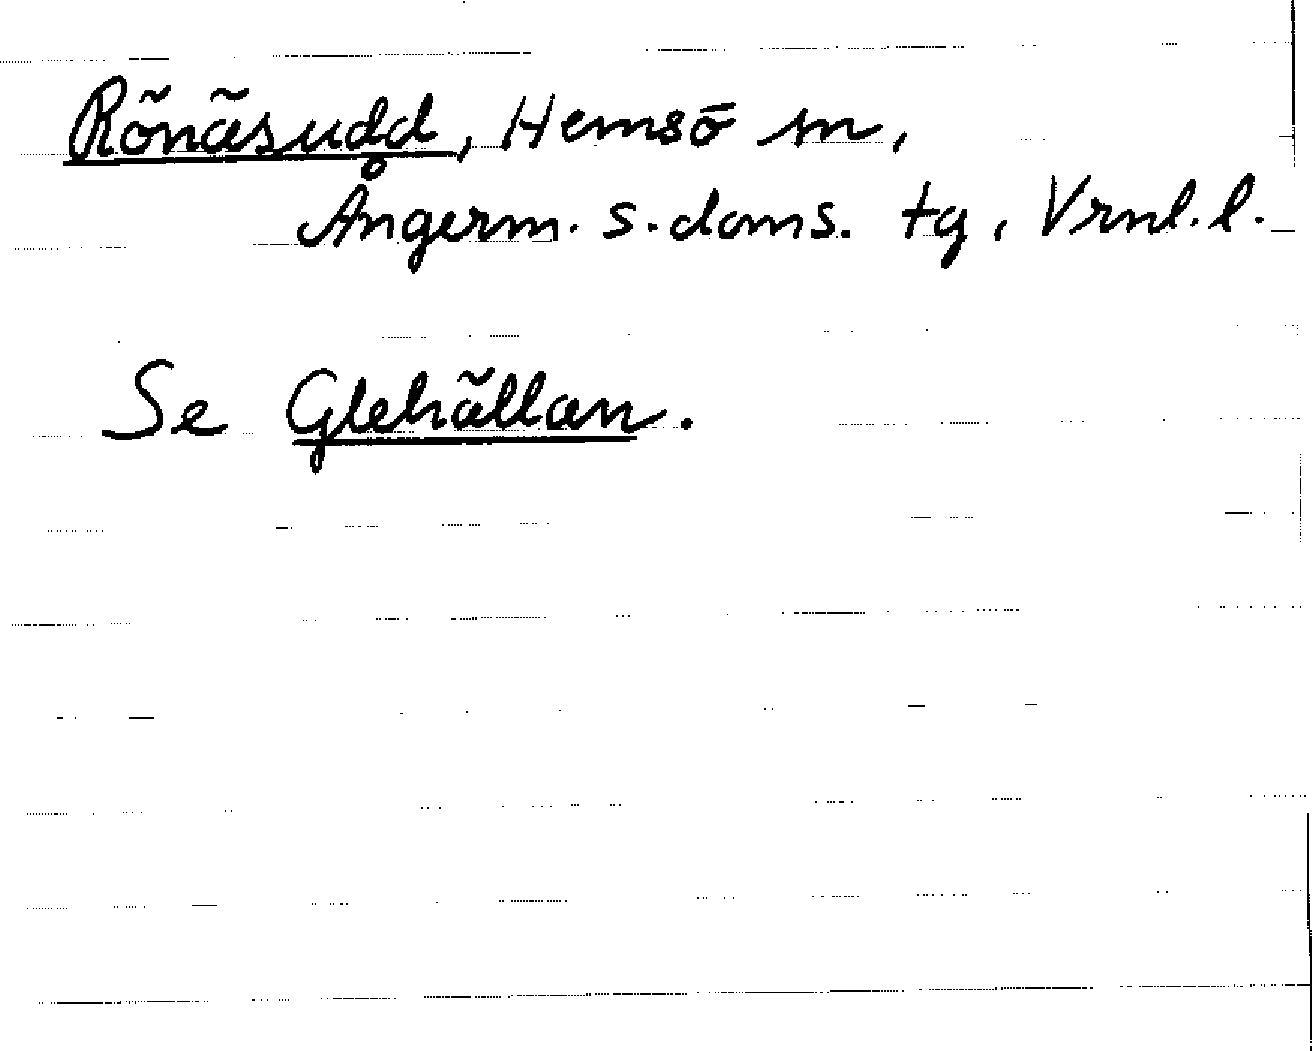 Rönäsudd, Hemsö sn,
Ångerm. s. doms. tg, Vrnl. l.
Se Glehällan.